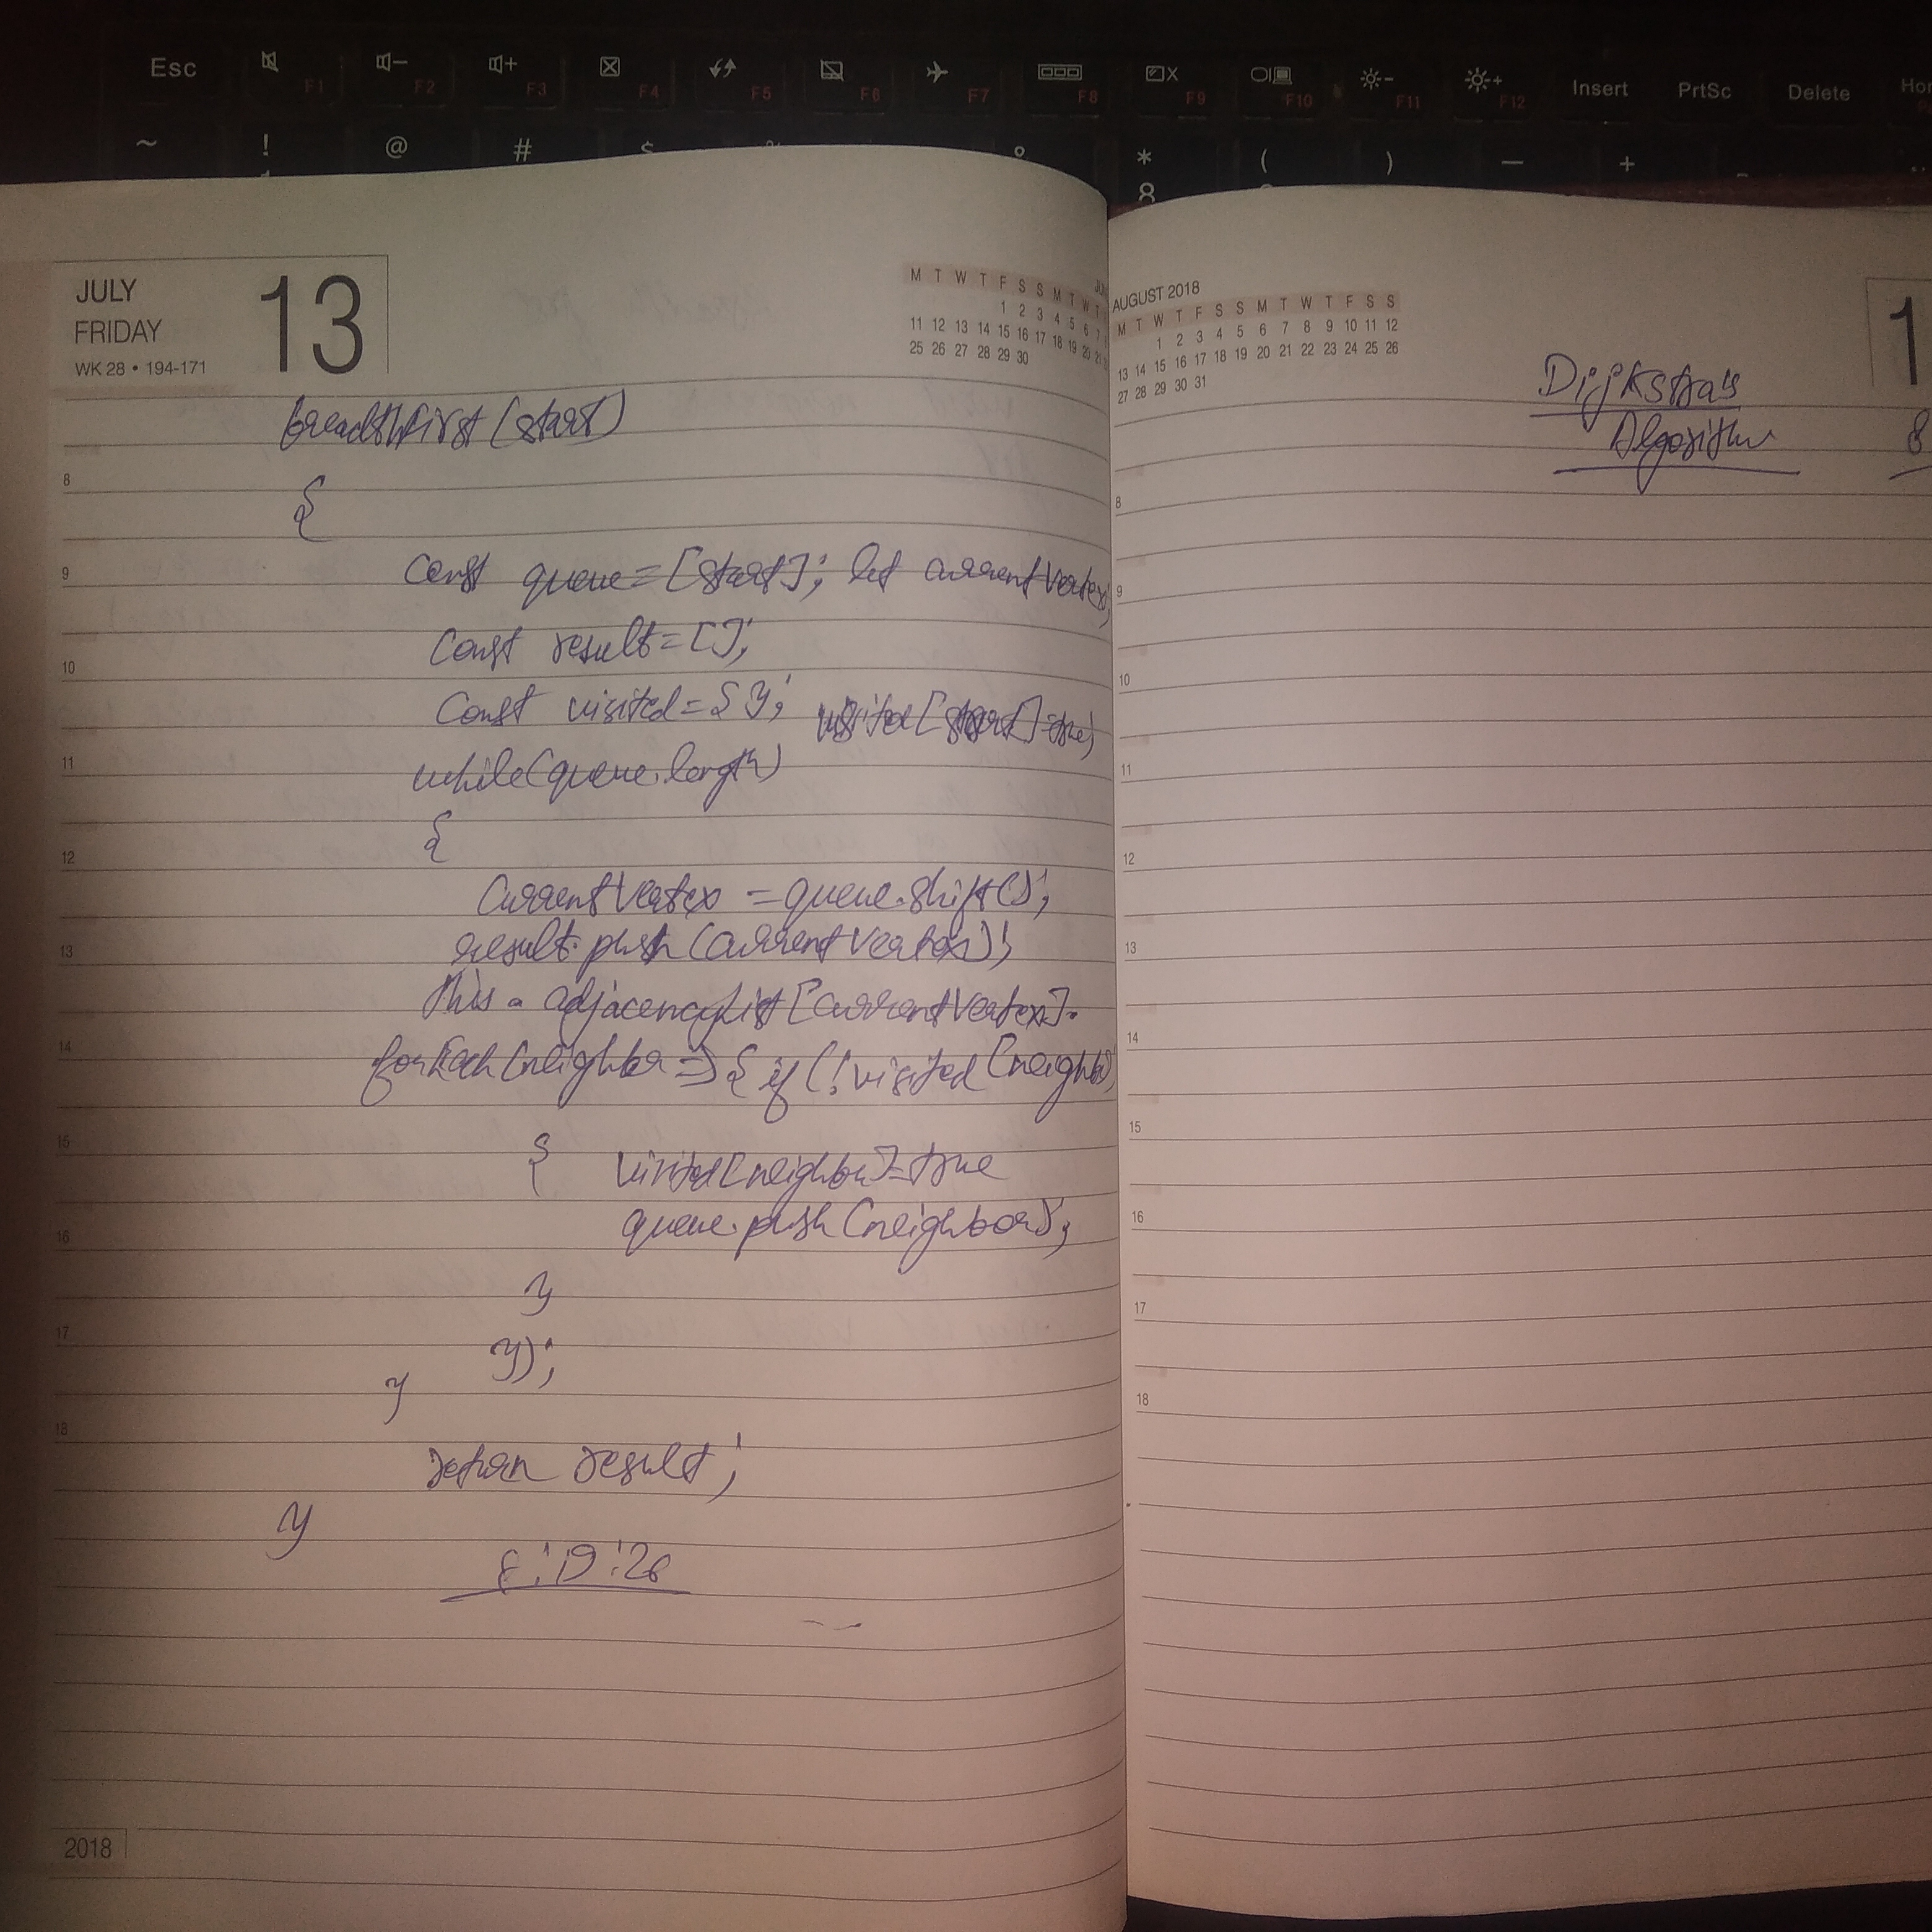 Esc
F1
F2
F3
F4
F5
F6
F7
F8
F9
F10
F11
F12
Insert
PrtSc
Delete
~ ! @ # $ * ( ) — +
8
JULY
FRIDAY
WK 28 • 194-171
13
M T W T F S S M T W T
1 2 3 4 5 6 7
11 12 13 14 15 16 17 18 19 20 21
25 26 27 28 29 30
breadthfirst(start)
8
{
9
const queue=[start]; let currentVertex;
const result=[];
10
const visited={}; visited[start]=true;
11
while(queue.length)
{
12
currentVertex = queue.shift();
result.push(currentVertex);
13
this.adjacencyList[currentVertex].
14
forEach(neighbor=>{ if(!visited[neighbor]
15
{ visited[neighbor]=true
queue.push(neighbor);
16
}
17
});
}
18
return result;
}
2018
AUGUST 2018
M T W T F S S M T W T F S S
1 2 3 4 5 6 7 8 9 10 11 12
13 14 15 16 17 18 19 20 21 22 23 24 25 26
27 28 29 30 31
1
Dijkstra's
Algorithm
8
9
10
11
12
13
14
15
16
17
18